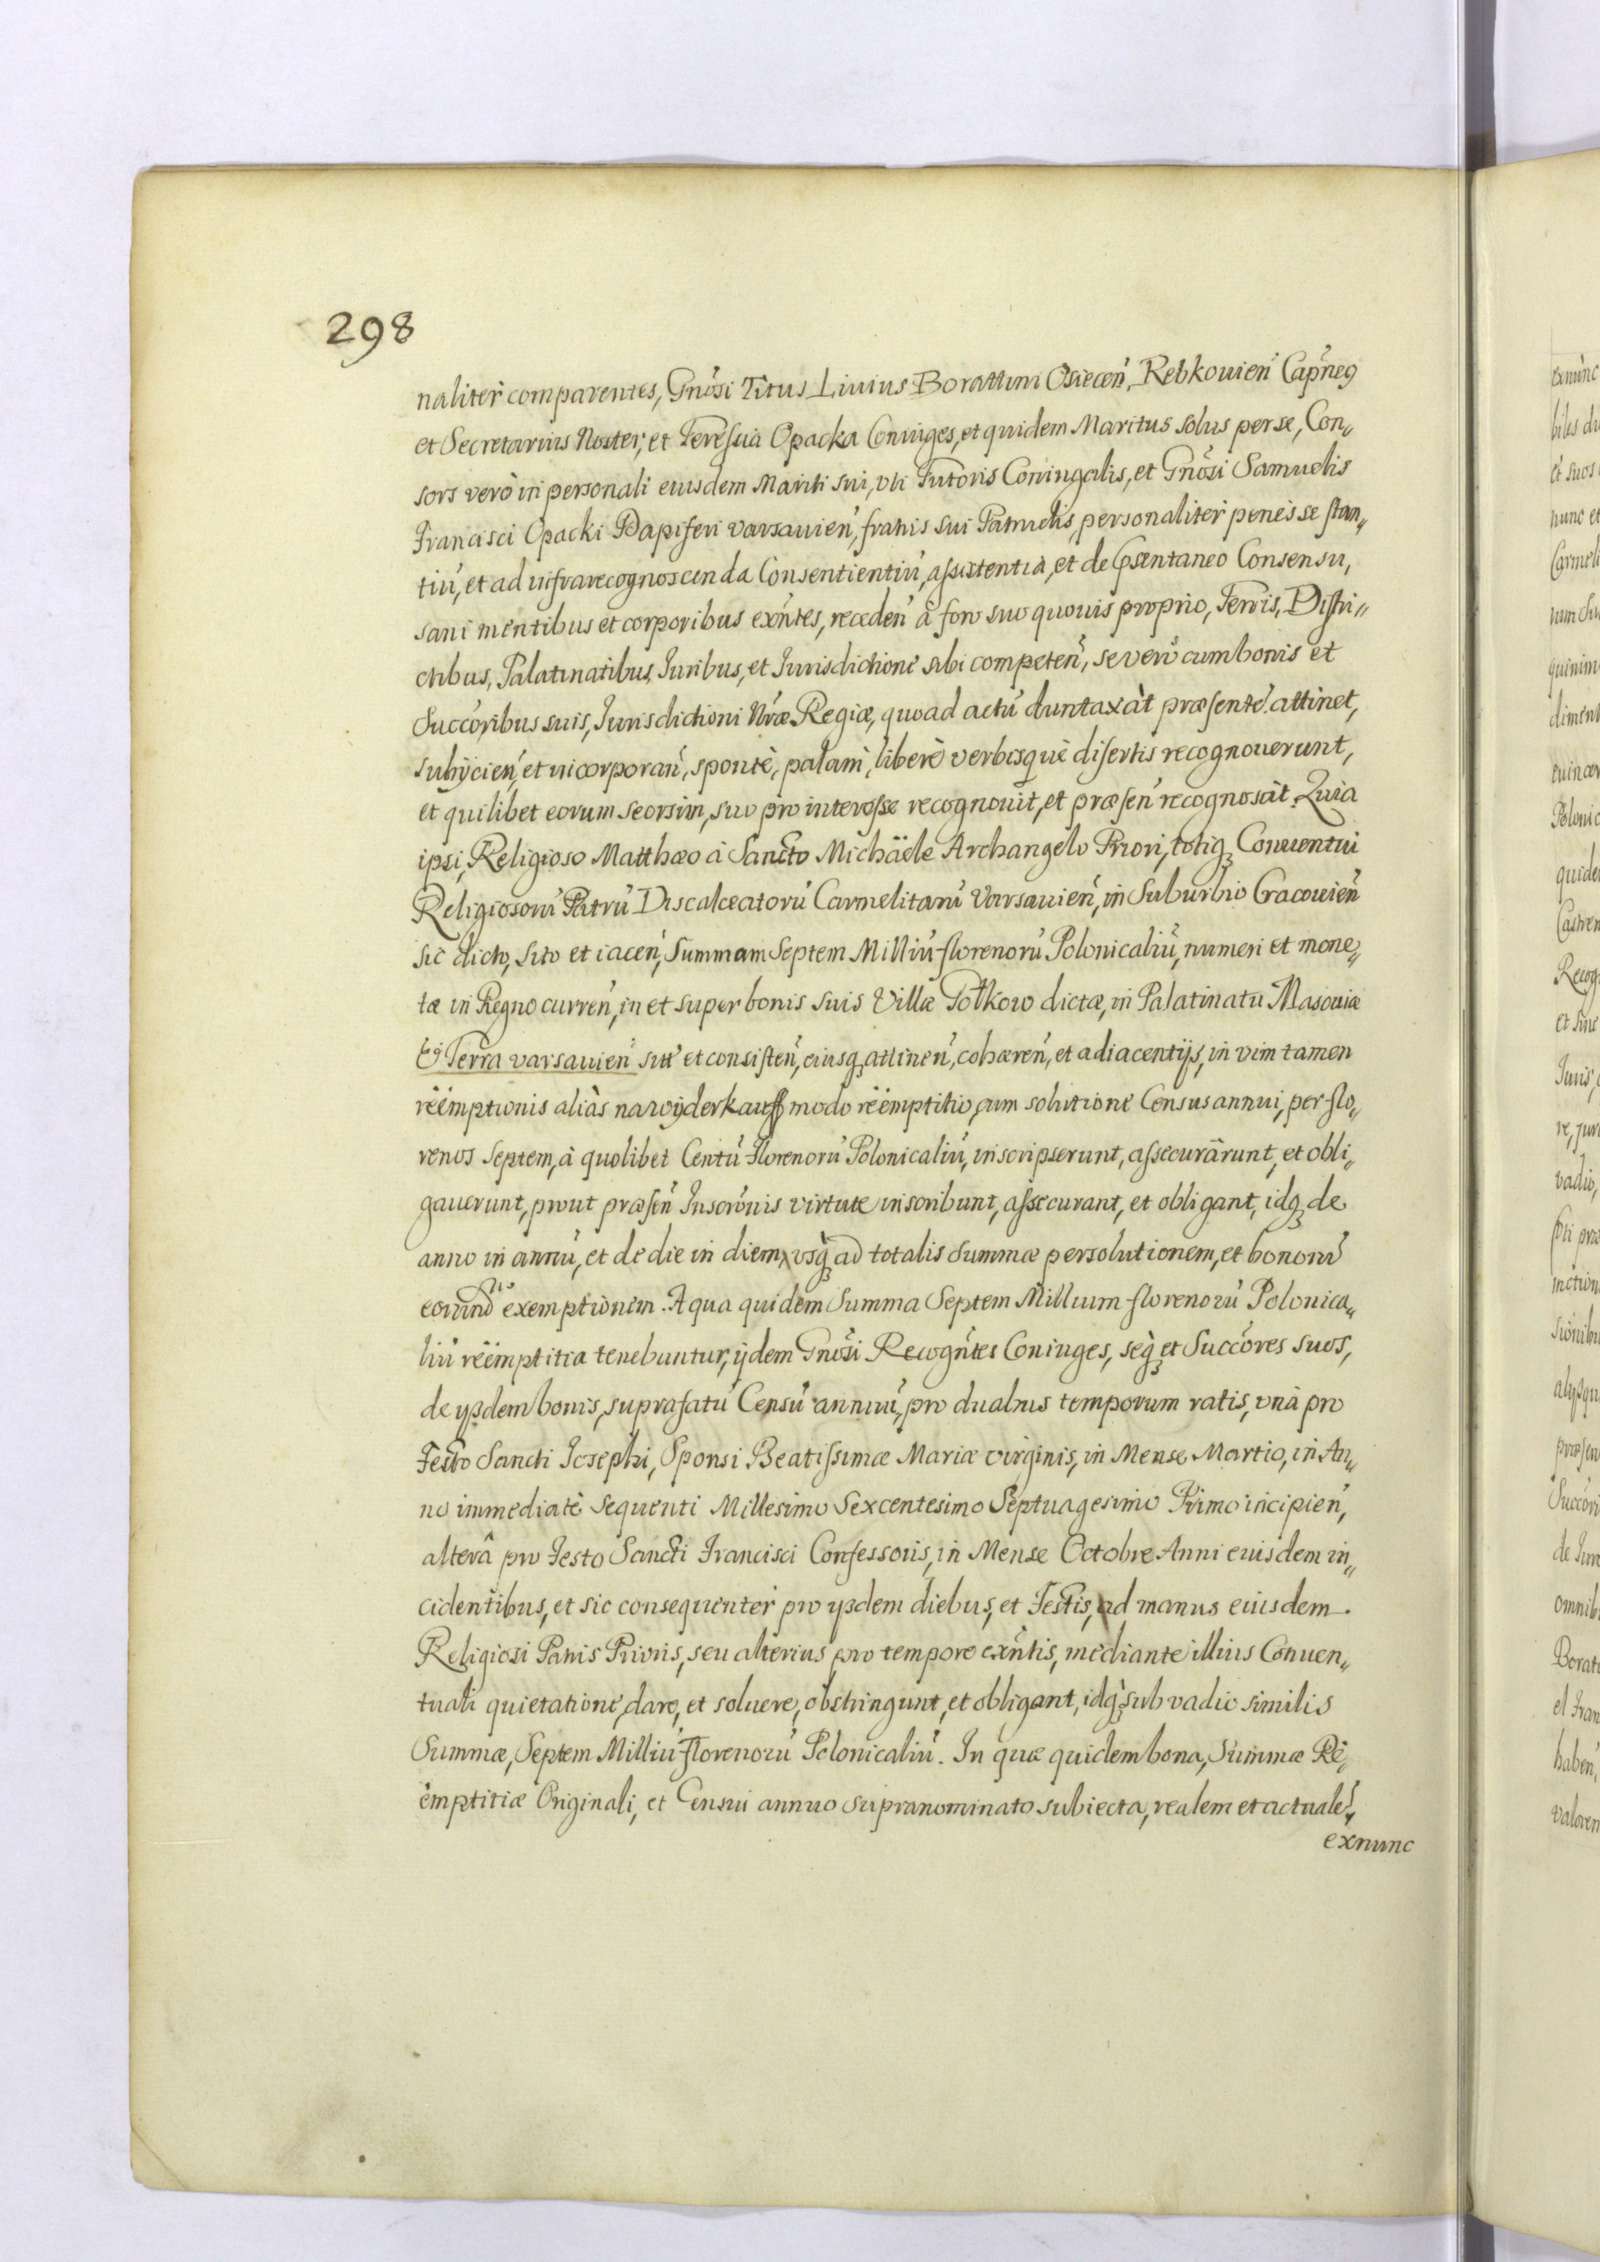 298
naliter comparentes, Gnõsi Titus Liuius Borattini Osiecen̄, Rebkouien̄ Capn̄eg
et Secretarius Noster, et Teresia Opacka Coniuges, et quidem Maritus solus per se, Con„
sors verò in personali eiusdem Mariti sui, vti Tutoris Coniugalis, et Gnõsi Samuelis
Francisci Opacki Dapiferi varsauien̄, fratris sui Patruelis, personaliter penès se stan„
tiū, et ad infrarecognoscenda Consentientiū, assistentiâ, et de Cp̄sentaneo Consensu,
sani mentibus et corporibus exn̄tes, receden̄ â foro suo quouis proprio, Terris, Distri„
ctibus, Palatinatibus, Iuribus, et Iurisdictione sibi competen̄, se verò cum bonis et
Succōribus suis, Iurisdictioni Nr̄æ Regiæ, quoad actū duntaxàt præsentē attinet,
subÿcien̄, et incorporan̄, spontè, palàm, liberè verbisquè disertis recognouerunt,
et quilibet eorum seorsim, suo pro interesse recognouit, et præsen̄ recognoscit. Quia
ipsi, Religioso Matthæo à Sancto Michäele Archangelo Priori, totiq̨ Conuentui
Religiosorū Patrū Discalceatorū Carmelitarū Varsauien̄, in Suburbio Cracouien̄
sic dicto, sito et iacen̄, Summam Septem Milliū florenorū Polonicaliū, numeri et mone„
tæ in Regno curren̄, in et super bonis suis Villæ Gołkow dictæ, in Palatinatu Masouiæ
Terra varsauien̄ sitæ et consisten̄, eiusq̨ attinen̄, cohæren̄, et adiacentijs, in vim tamen
rëemptionis aliàs nawÿderkauff modo rëemptitio, cum solutione Census annui, per flo„
renos septem, à quolibet Centū Florenorū Polonicaliū, inscripserunt, assecurârunt, et obli„
gauerunt, prout præsen̄ Inscrōnis virtute inscribunt, assecurant, et obligant, idq̨ de
anno in annū, et de die in diem, vsq̨ ad totalis Summæ persolutionem, et bonorū
eorund exemptionem. A qua quidem Summa Septem Millium florenorū Polonica„
liū rëemptitia tenebuntur, ÿdem Gnõsi Recogn̄tes Coniuges, seq̨ et Succōres suos,
de ÿsdem bonis, suprafatū Censū annuū, pro duabus temporum ratis, vnâ pro
Festo Sancti Iosephi, Sponsi Beatissimæ Mariæ virginis, in Mense Martio, in An„
no immediatè sequenti Millesimo Sexcentesimo Septuagesimo Primo incipien̄,
alterâ pro Festo Sancti Francisci Confessoris, in Mense Octobre Anni eiusdem in„
cidentibus, et sic consequenter pro ÿsdem diebus, et Festis, ad manus eiusdem
Religiosi Patris Prioris, seu alterius pro tempore exn̄tis, mediante illius Conuen„
tuali quietatione, dare, et soluere, obstringunt, et obligant, idq̨ sub vadio similis
Summæ, Septem Milliū Florenorū Polonicaliū. In quæ quidem bona, Summæ Rë„
emptitiæ Originali, et Censui annuo supranominato subiecta, realem et actualē,
exnunc